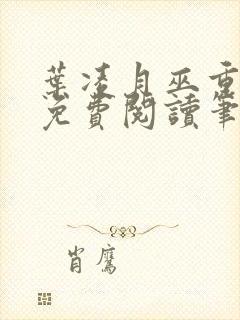 葉凌月巫重
免費閱讀筆
肖鷹